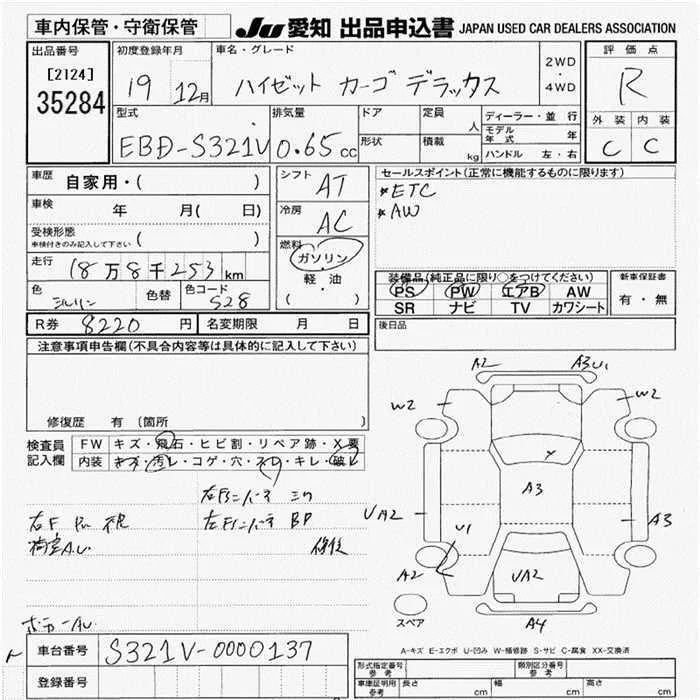 車内保管・守衛保管
JU 愛知 出品申込書 JAPAN USED CAR DEALERS ASSOCIATION
出品番号
[2124]
35284
初度登録年月
19 12月
車名・グレード
ハイゼット カーゴ デラックス
2WD
・
4WD
評価点
R
外装 内装
C C
型式
EBD-S321V
排気量
0.65cc
ドア
形状
定員
人
積載
kg
ディーラー・並行
モデル年式 年
ハンドル 左・右
車歴
自家用・( )
車検
年 月( 日)
受検形態
車検付きのみ記入して下さい ( )
走行
18万8千253km
色
シルバー
色替
色コード
S28
シフト
AT
冷房
AC
燃料
ガソリン
・
軽・油
( )
セールスポイント(正常に機能するものに限ります)
*ETC
*AW
装備品(純正品に限り○をつけてください)
PS PW エアB AW
SR ナビ TV カワシート
新車保証書
有・無
R券 8220 円
名変期限 月 日
後日品
注意事項申告欄(不具合内容等は具体的に記入して下さい)
修復歴 有 〔箇所 〕
検査員記入欄
FW キズ・飛石・ヒビ割・リペア跡・X要
内装 キズ・汚レ・コゲ・穴・スレ・キレ・破レ
A2 A3U1
W2 W2
A3
UA2 U1 A3
A2 UA2
スペア
A4
BP
車台番号
S321V-0000137
登録番号
A-キズ E-エクボ U-凹み W-補修跡 S-サビ C-腐食 XX-交換済
形式指定番号 参考
類別区分番号 参考
車庫証明用 参考
長さ cm
幅 cm
高さ cm